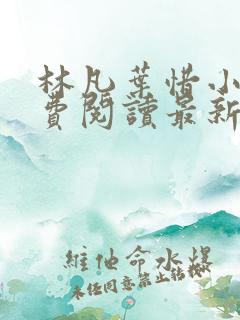 林凡葉惜小
費閱讀最新
維他命水爆
未任同意禁止轉載